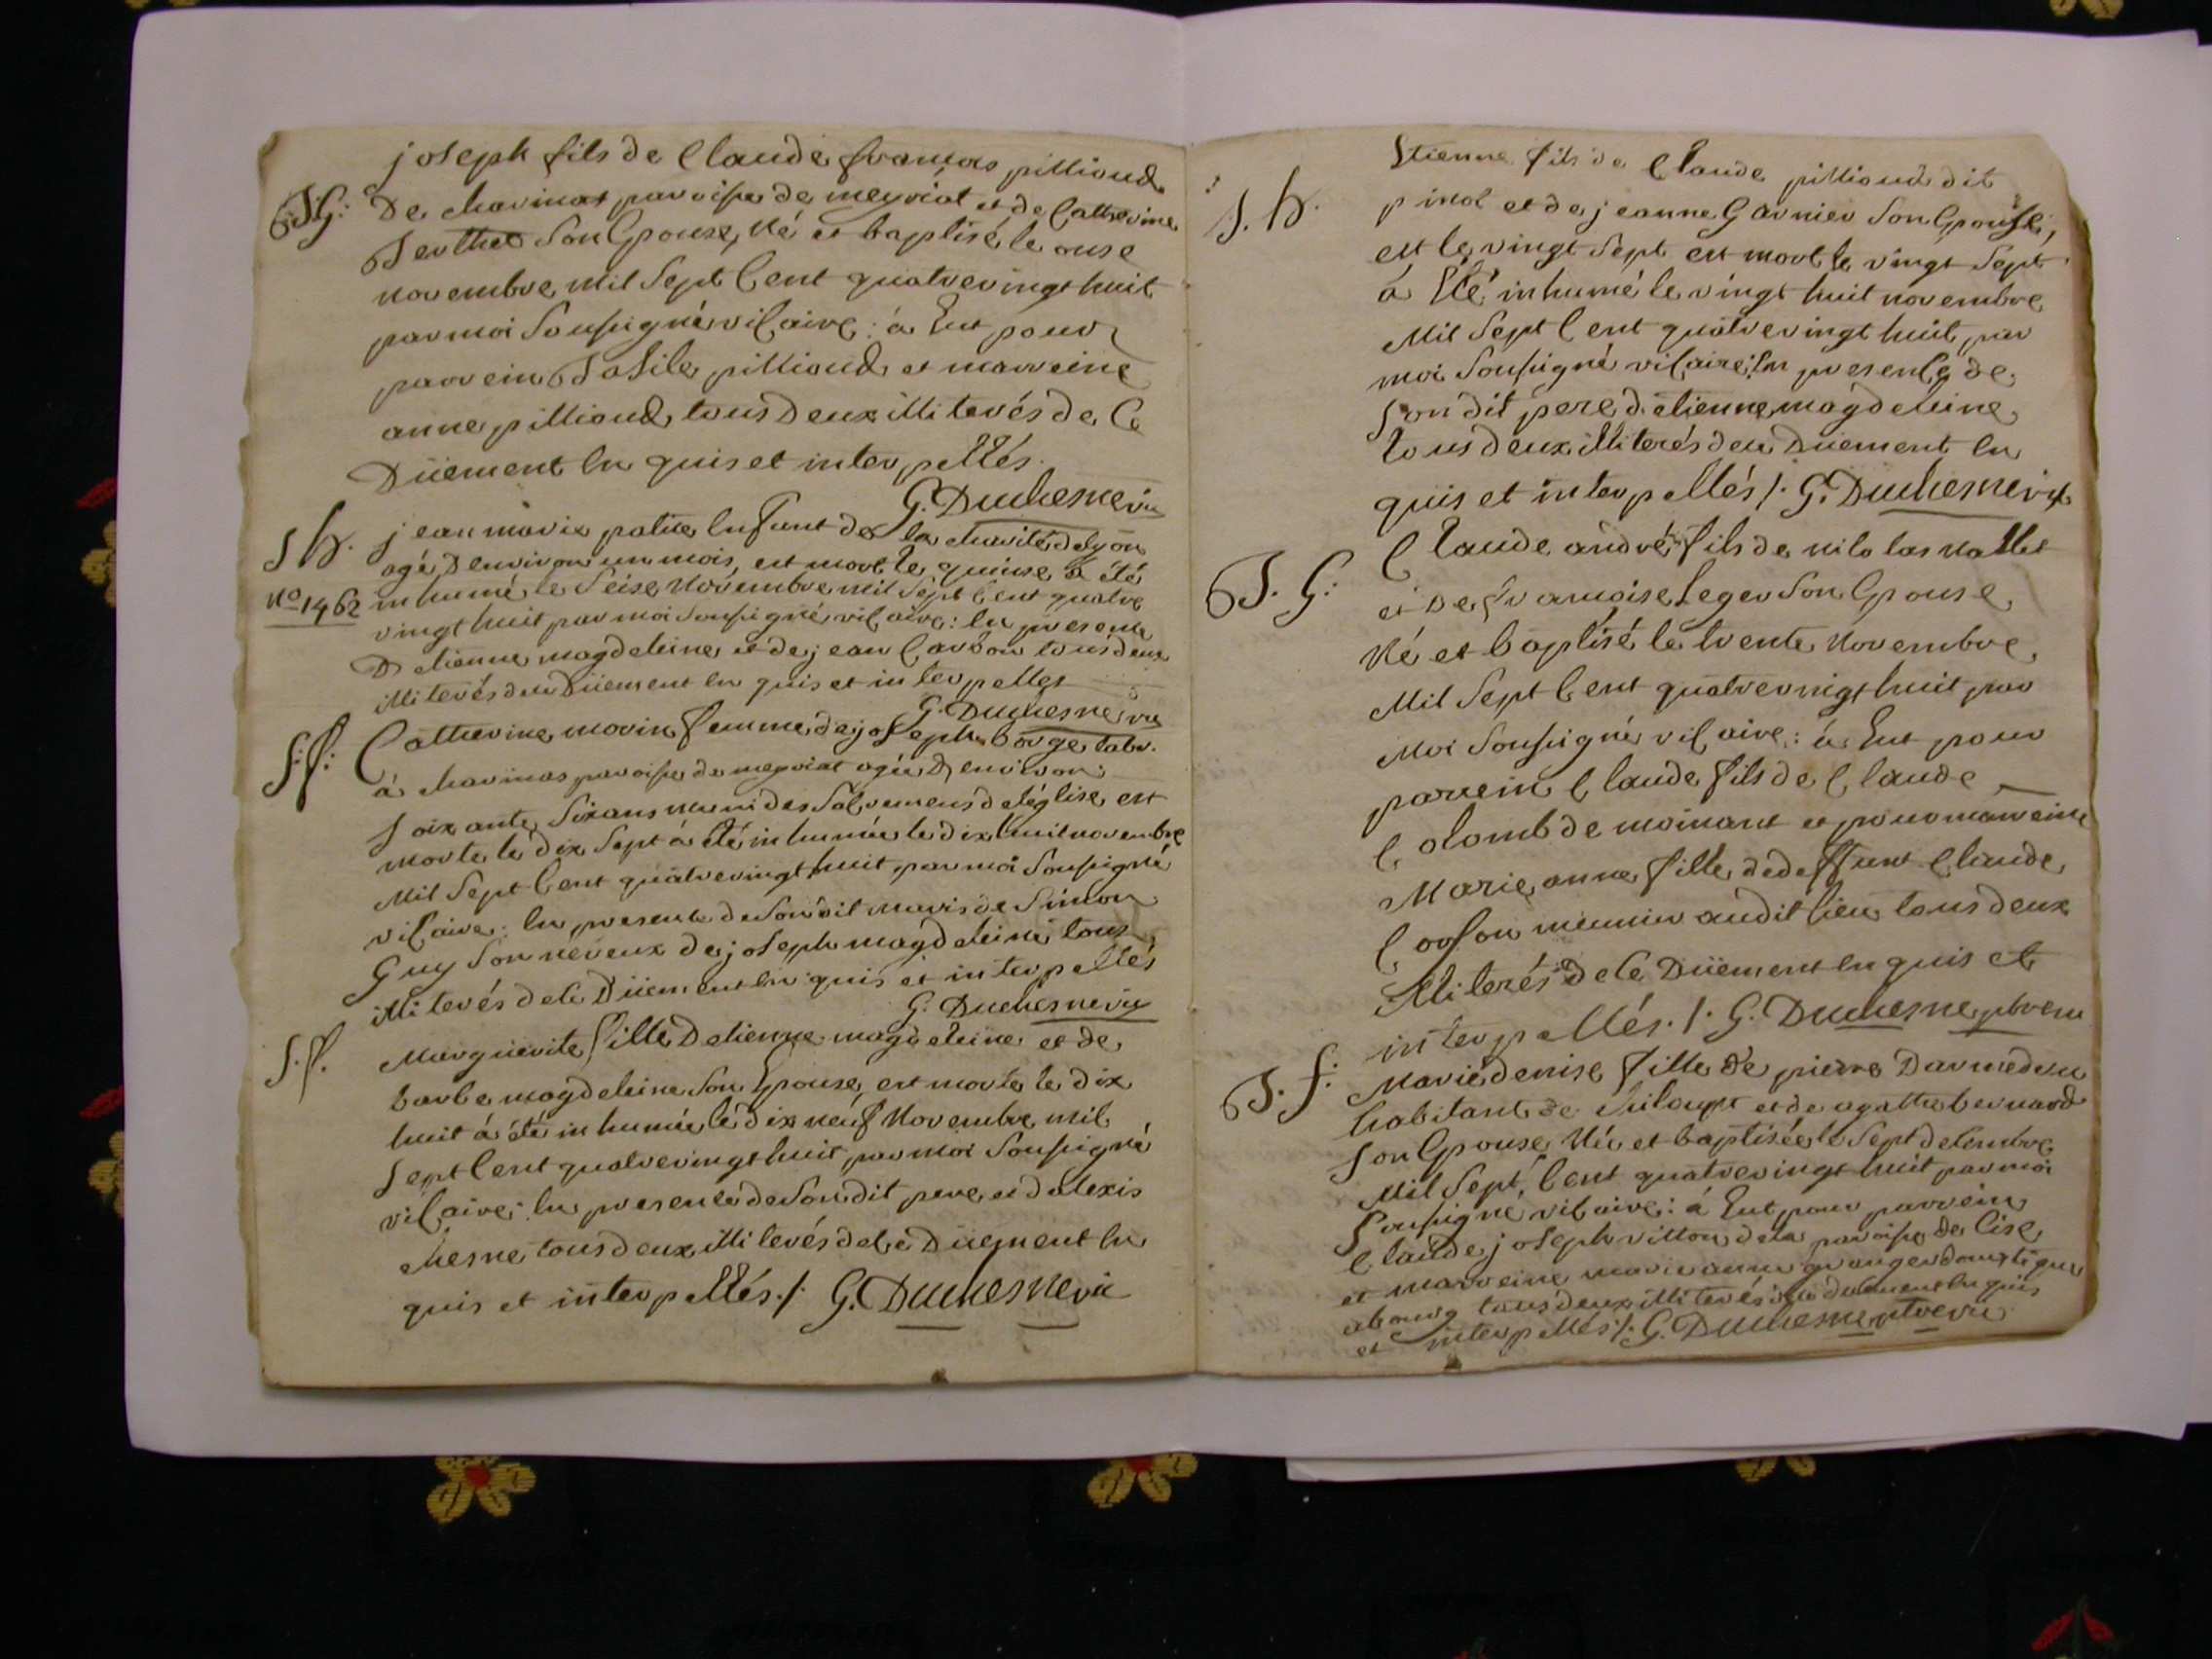 joseph fils de Claude francois pillioud
B G: De charinas paroisse de meyriat et de Catherine
Berthet son Epouse, Né et baptisé le onse
novembre mil sept Cent quatrevingt huit
par moi soussigné viCaire: á Eut pour
parrein Basile pillioud et marreine
anne pillioud, tous Deux illiterés de Ce
Düement En quis et interpellés.
G. Duchesne vic
S h. jean marie Enfant de la charité de lyon
agé D'environ un mois, est mort le quinse a été
No 1462 inhumé le seise Novembre mil sept Cent quatre
vingt huit par moi soussigné viCaire: En presence
D'etienne magdeleine et de jean Carbon tous deux
illiterés de Ce Düement En quis et interpellés
G. Duchesne vic
S: f: Catherine morin femme de joseph borge labr.
á charinas paroisse de meyriat agée D'environ
soixante six ans munie des saCremens de léglise est
morte le dix sept á été inhumée le dix huit novembre
Mil sept Cent quatrevingt huit par moi soussigné
viCaire: En presence de son dit maris de Simon
Guy son neveux de joseph magdeleine tous
illiterés de Ce Düement En quis et interpellés
G. Duchesne vic
S. f. Marguerite fille D'etienne magdeleine et de
barbe magdeleine son Epouse, est morte le dix
huit á été inhumée le dix neuf Novembre mil
sept Cent quatrevingt huit par moi soussigné
viCaire: En presence de son dit pere et d'alexis
chesne tous deux illiterés de Ce Düement En
quis et interpellés./. G. Duchesne vic
S. h. Etienne fils de Claude pillioud dit
pinol et de jeanne Garnier son Epouse,
est le vingt sept est mort le vingt sept
á Eté inhumé le vingt huit novembre
Mil sept Cent quatrevingt huit par
moi soussigné viCaire: En presenCe de
son dit pere d'etienne magdeleine
tous deux illiterés de Ce Düement En
quis et interpellés /. G. Duchesne vic
B. G: Claude andré fils de niColas Nallet
et De francoise Leger son Epouse
Né et baptisé le trente Novembre
Mil sept Cent quatrevingt huit par
Moi soussigné viCaire: á Eut pour
parrein Claude fils de Claude
Colomb de moinant et pour marreine
Marie anne fille de deffunt Claude
Corson meunier audit lieu tous deux
illiterés de Ce Düement En quis et
interpellés. /. G. Duchesne ptre vic
B. f: Marie denise fille de pierre Darmederu
habitant de et de agathe bernard
son Epouse Née et baptisée le sept deCembre
Mil sept Cent quatrevingt huit par moi
soussigné viCaire: á Eut pour parrein
Claude joseph villon de la paroisse de Cise
et marreine marie anne granger domestique
au bourg tous deux illiterés de Ce duement En quis
et interpellés /. G. Duchesne ptre vic